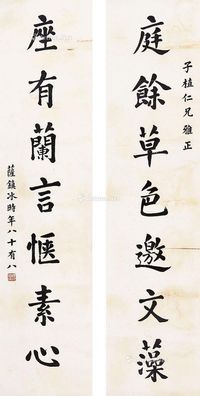 子植仁兄雅正
庭餘草色邀文藻
座有蘭言愜素心
薩鎮冰時年八十有八